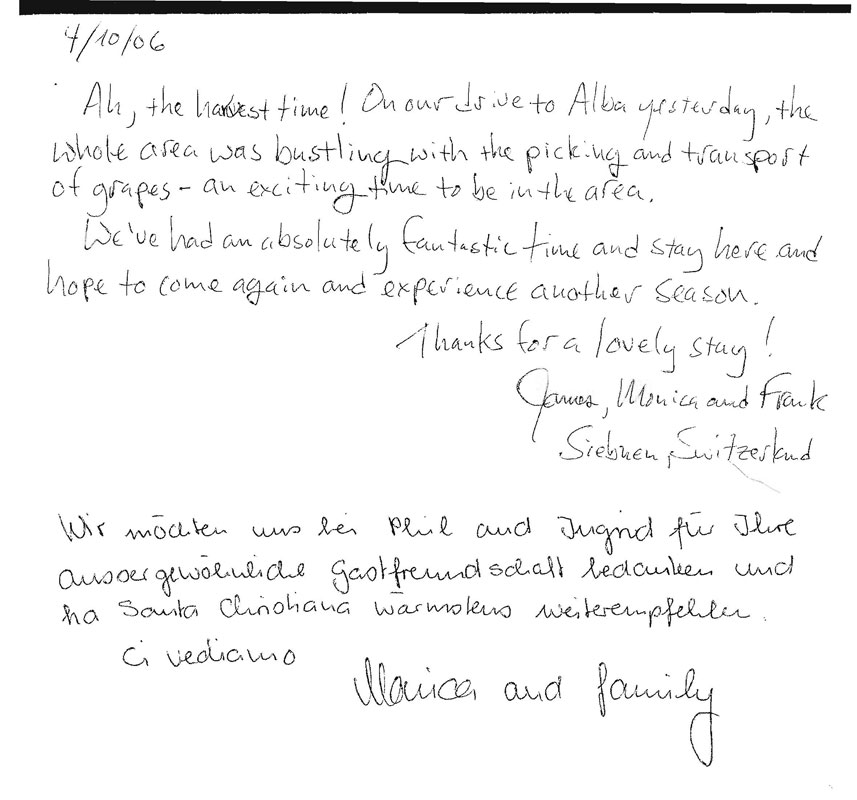 4/10/06
Ah, the harvest time! On our drive to Alba yesterday, the
whole area was bustling with the picking and transport
of grapes - an exciting time to be in the area.
We've had an absolutely fantastic time and stay here and
hope to come again and experience another season.
Thanks for a lovely stay!
James, Monica and Frank
Siebnen, Switzerland
Wir möchten uns bei Phil and Ingrid für Ihre
aussergewöhnliche Gastfreundschaft bedanken und
La Santa Christiana wärmstens weiterempfehlen.
Ci vediamo
Monica and family